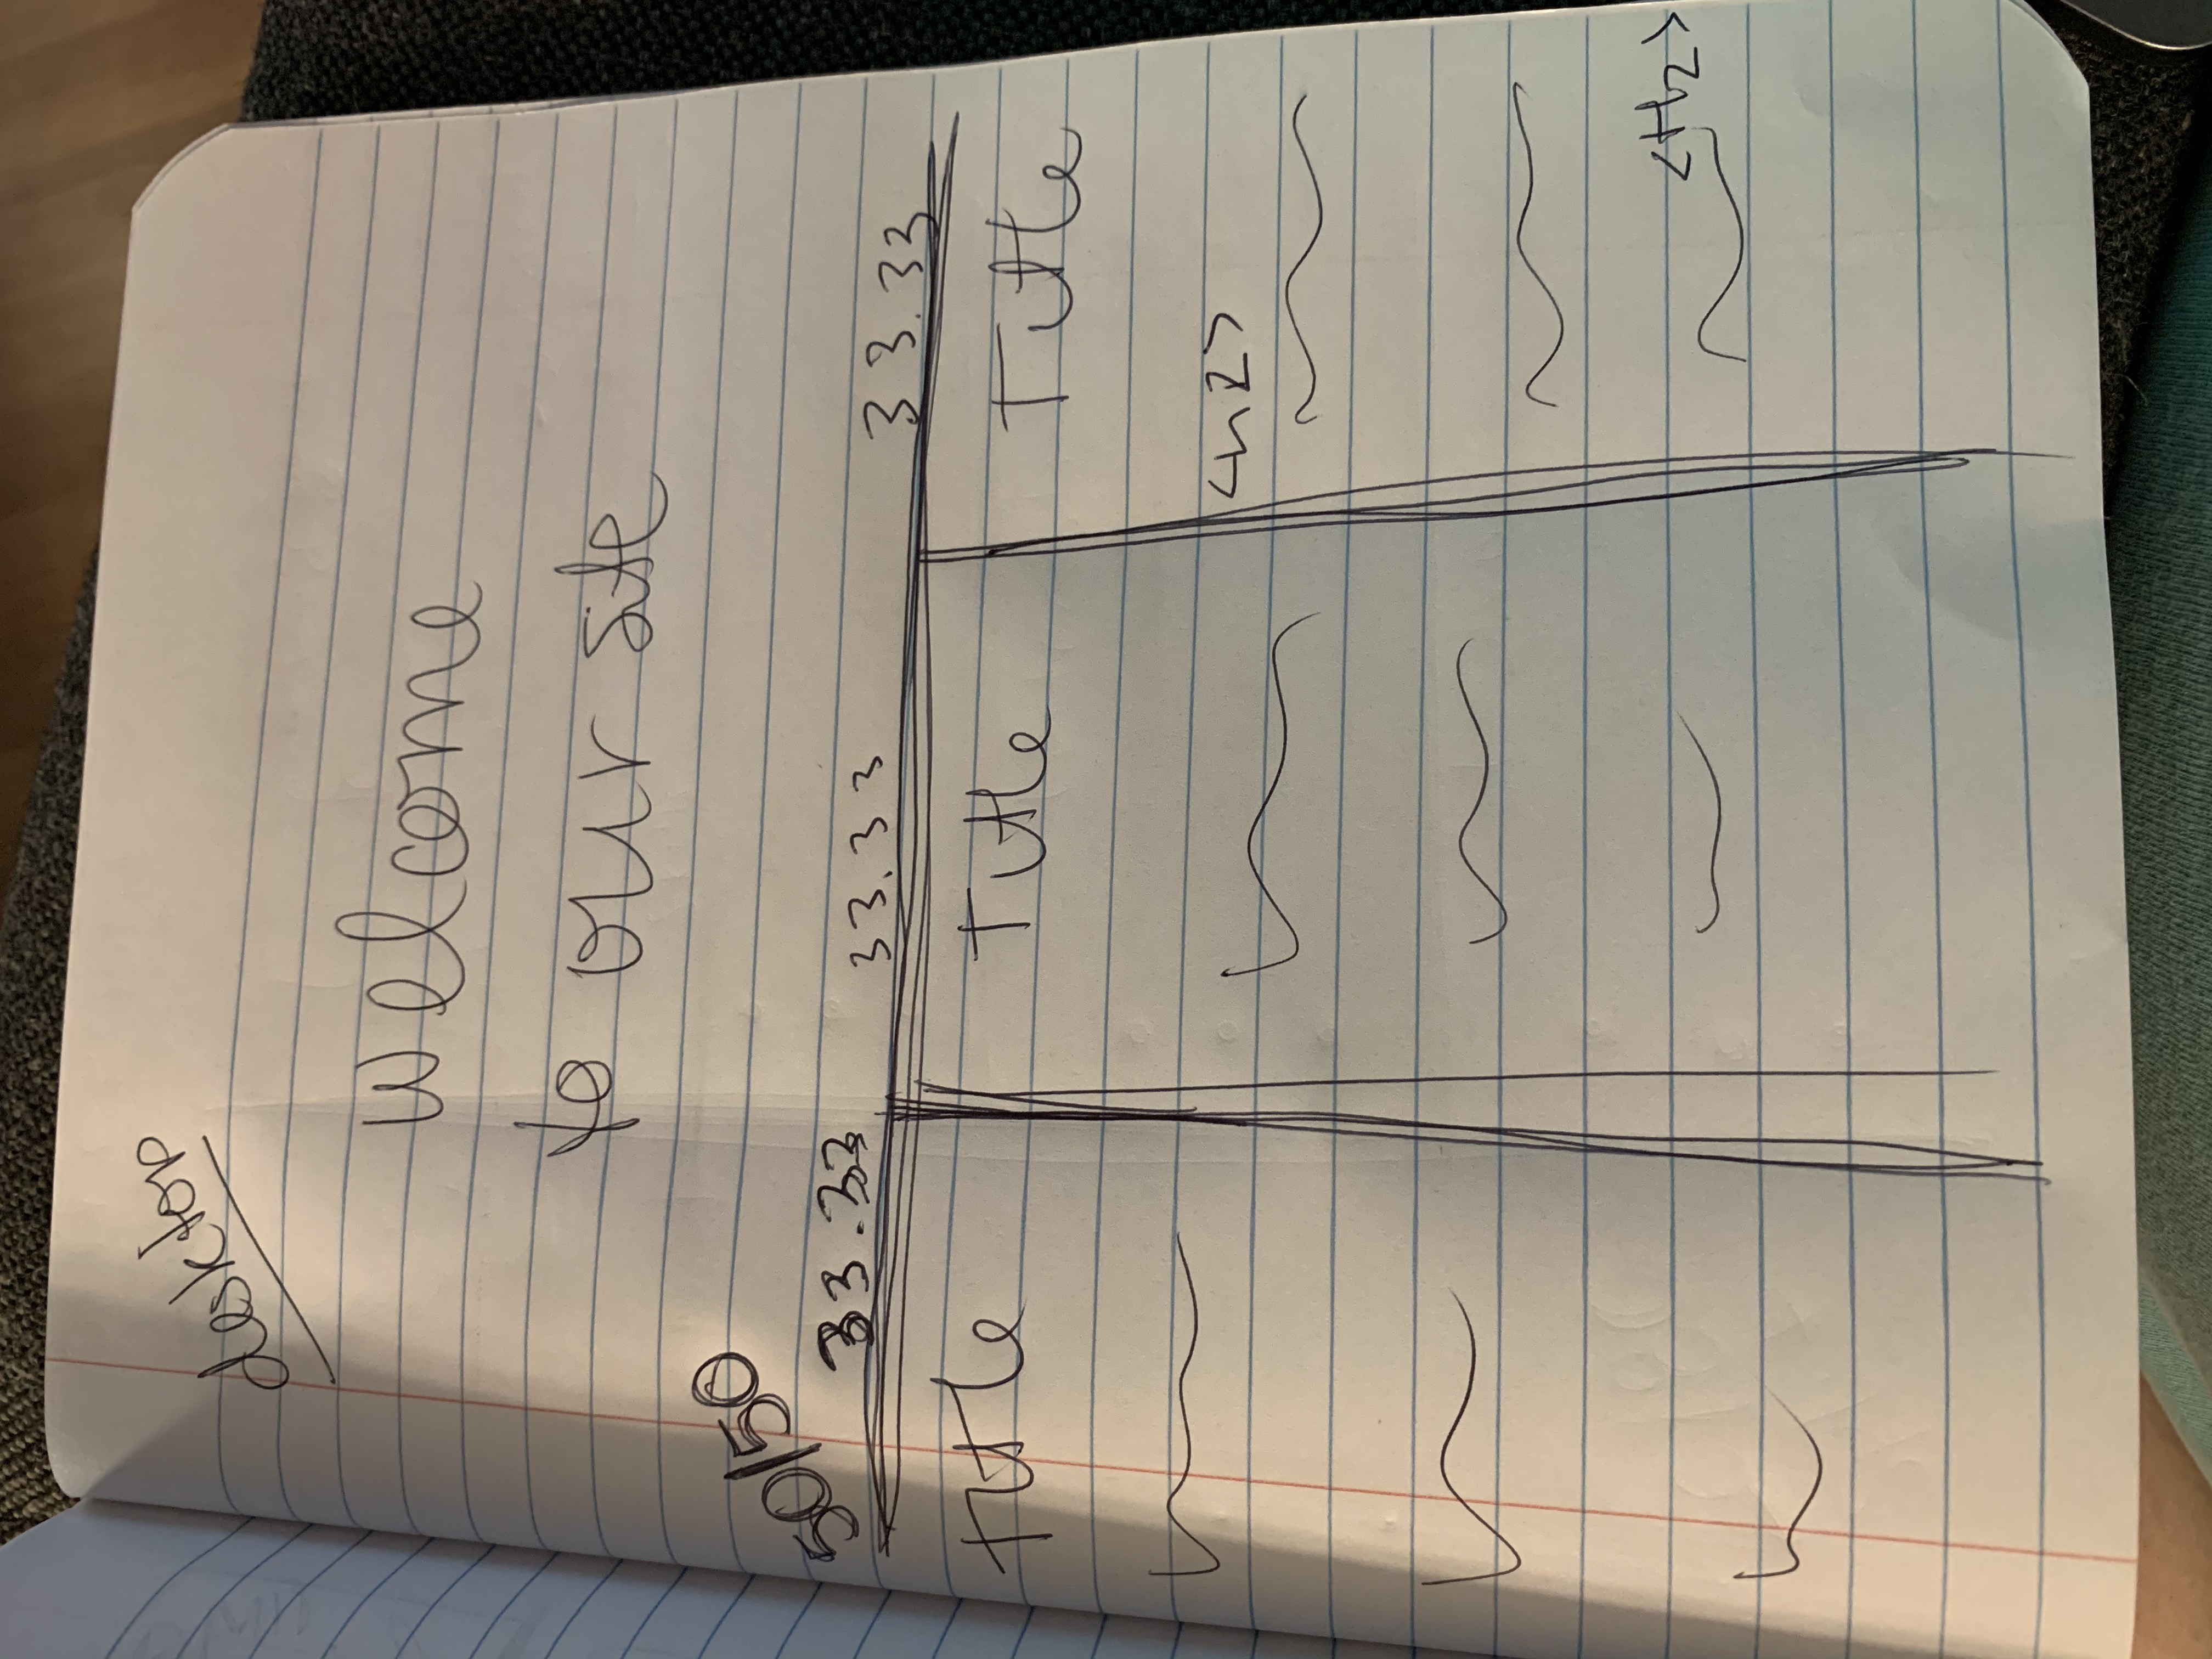 desktop
welcome
to our site
50/50
33.33 33.33 33.33
Title Title Title
<h2>
<H2>